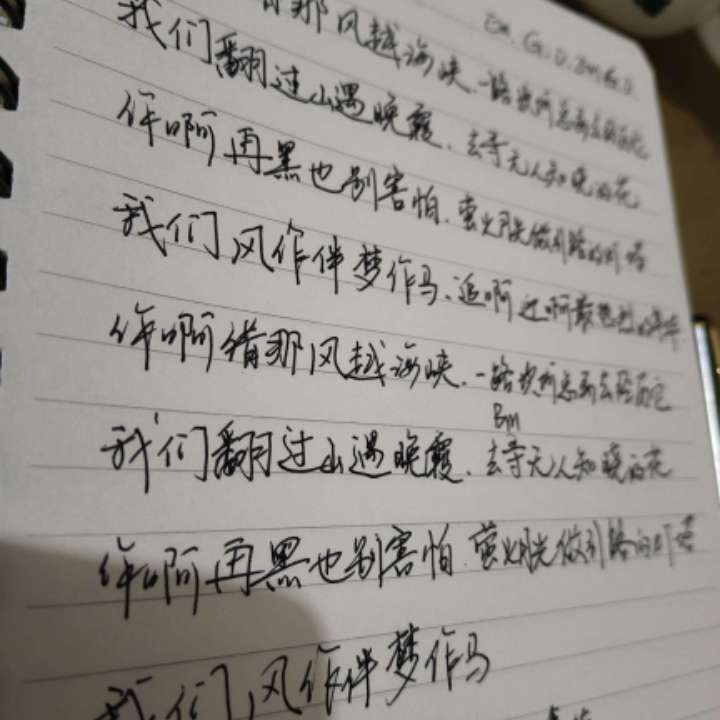 Em. G. D. Bm. G. D.
借那风越海峡.一路
我们翻过山遇晚霞.去寻无人知晓的花
伴啊再黑也别害怕.萤火月光做引路的灯塔
我们风作伴梦作马.追啊赶啊最热烈的年华.
伴啊借那风越海峡.一路
Bm
我们翻过山遇晚霞.去寻无人知晓的花
伴啊再黑也别害怕.萤火月光做引路的灯塔
我们风作伴梦作马